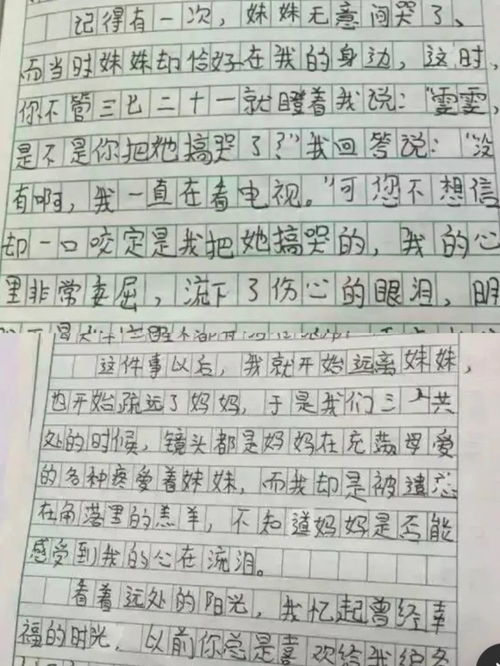 记得有一次，妹妹无意间哭了、
而当时妹妹却恰好在我的身边，这时，
你不管三七二十一就瞪着我说：“雯雯，
是不是你把她搞哭了？”我回答说：“没
有啊，我一直在看电视。”何您不想信
却一口咬定是我把她搞哭的，我的心
里非常委屈，流下了伤心的眼泪，明
这件事以后，我就开始远离妹妹，
也开始疏远了妈妈，于是我们三人共
处的时候，镜头都是妈妈在充满母爱
的各种疼爱着妹妹，而我却是被遗忘
在角落里的羔羊，不知道妈妈是否能
感受到我的心在流泪。
看着远处的阳光，我忆起曾经幸
福的时光，以前你总是喜欢给我